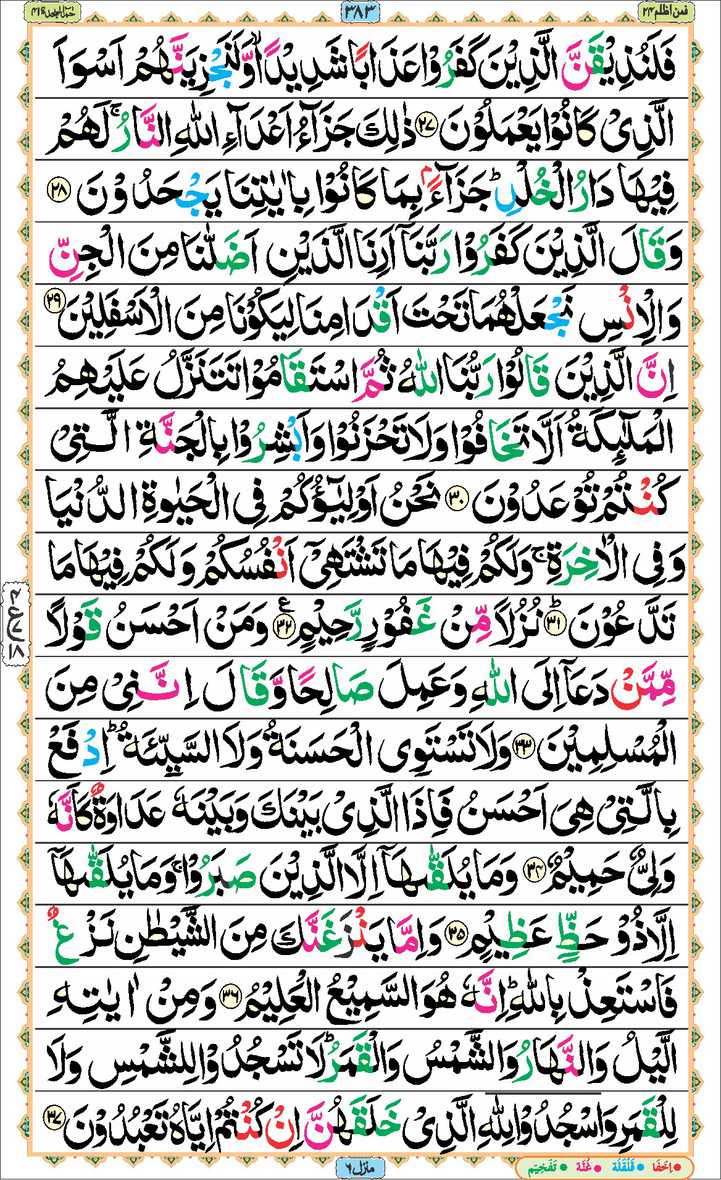 فمن اظلم ۲۴
۳۸۳
حٰمٓ السجدة ۴۱
فَلَنُذِیْقَنَّ الَّذِیْنَ كَفَرُوْا عَذَابًا شَدِیْدًا ۙ وَّ لَنَجْزِیَنَّهُمْ اَسْوَاَ
الَّذِیْ كَانُوْا یَعْمَلُوْنَ ۲۷ ذٰلِكَ جَزَآءُ اَعْدَآءِ اللّٰهِ النَّارُ ۚ لَهُمْ
فِیْهَا دَارُ الْخُلْدِ ؕ جَزَآءًۢ بِمَا كَانُوْا بِاٰیٰتِنَا یَجْحَدُوْنَ ۲۸
وَ قَالَ الَّذِیْنَ كَفَرُوْا رَبَّنَاۤ اَرِنَا الَّذَیْنِ اَضَلّٰنَا مِنَ الْجِنِّ
وَ الْاِنْسِ نَجْعَلْهُمَا تَحْتَ اَقْدَامِنَا لِیَكُوْنَا مِنَ الْاَسْفَلِیْنَ ۲۹
اِنَّ الَّذِیْنَ قَالُوْا رَبُّنَا اللّٰهُ ثُمَّ اسْتَقَامُوْا تَتَنَزَّلُ عَلَیْهِمُ
الْمَلٰٓىِٕكَةُ اَلَّا تَخَافُوْا وَ لَا تَحْزَنُوْا وَ اَبْشِرُوْا بِالْجَنَّةِ الَّتِیْ
كُنْتُمْ تُوْعَدُوْنَ ۳۰ نَحْنُ اَوْلِیٰٓؤُكُمْ فِی الْحَیٰوةِ الدُّنْیَا
وَ فِی الْاٰخِرَةِ ۚ وَ لَكُمْ فِیْهَا مَا تَشْتَهِیْۤ اَنْفُسُكُمْ وَ لَكُمْ فِیْهَا مَا
تَدَّعُوْنَ ؕ ۳۱ نُزُلًا مِّنْ غَفُوْرٍ رَّحِیْمٍ ۳۲ ع وَ مَنْ اَحْسَنُ قَوْلًا
مِّمَّنْ دَعَاۤ اِلَى اللّٰهِ وَ عَمِلَ صَالِحًا وَّ قَالَ اِنَّنِیْ مِنَ
الْمُسْلِمِیْنَ ۳۳ وَ لَا تَسْتَوِی الْحَسَنَةُ وَ لَا السَّیِّئَةُ ؕ اِدْفَعْ
بِالَّتِیْ هِیَ اَحْسَنُ فَاِذَا الَّذِیْ بَیْنَكَ وَ بَیْنَهٗ عَدَاوَةٌ كَاَنَّهٗ
وَلِیٌّ حَمِیْمٌ ۳۴ وَ مَا یُلَقّٰىهَاۤ اِلَّا الَّذِیْنَ صَبَرُوْا ۚ وَ مَا یُلَقّٰىهَاۤ
اِلَّا ذُوْ حَظٍّ عَظِیْمٍ ۳۵ وَ اِمَّا یَنْزَغَنَّكَ مِنَ الشَّیْطٰنِ نَزْغٌ
فَاسْتَعِذْ بِاللّٰهِ ؕ اِنَّهٗ هُوَ السَّمِیْعُ الْعَلِیْمُ ۳۶ وَ مِنْ اٰیٰتِهِ
الَّیْلُ وَ النَّهَارُ وَ الشَّمْسُ وَ الْقَمَرُ ؕ لَا تَسْجُدُوْا لِلشَّمْسِ وَ لَا
لِلْقَمَرِ وَ اسْجُدُوْا لِلّٰهِ الَّذِیْ خَلَقَهُنَّ اِنْ كُنْتُمْ اِیَّاهُ تَعْبُدُوْنَ ۳۷
منزل ۶
اِخفَا قَلْقَلَة غُنَّة تَفْخِيم